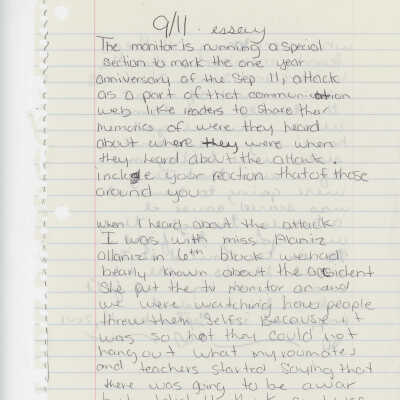 9/11 . essay
The monitor is running a special
section to mark the one year
anniversary of the Sep 11, attack
as a part of that communication
web like readers to share ther
memories of were they heard
about where they were when
they heard about the attack.
include your reaction that of those
around you
when I heard about the attack
I was with miss Alaniz
allaniz in 6th block we had
bearly known about the accident
she put the tv monitor on and
we were watching how people
threw them selfs Because it
was so hot they could not
hang out what my roomates
and teachers started saying that
there was going to be a war